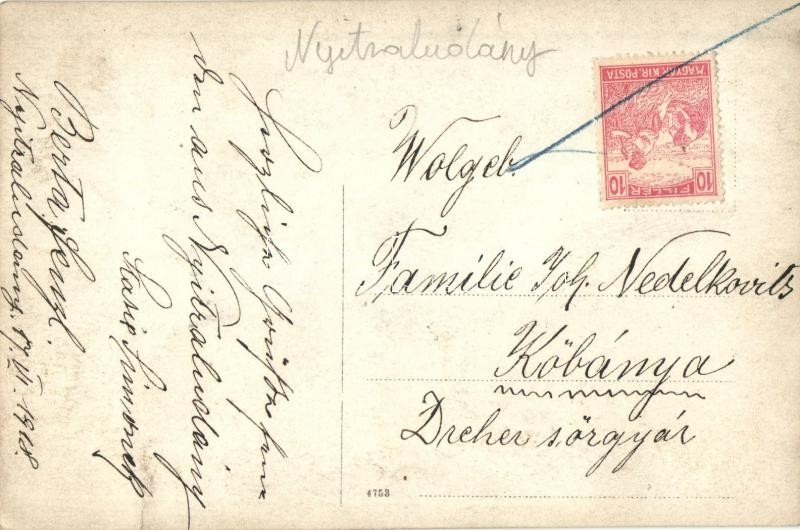 Nyitraludány
MAGYAR KIR. POSTA
10 FILLÉR 10
Wolgeb.
Familie Joh. Nedelkovits
Kőbánya
Dreher sörgyár
Herzliche Grüsse
aus Nyitraludány
Simonek
Berta
Nyitraludany, 17/VI 1918.
4753